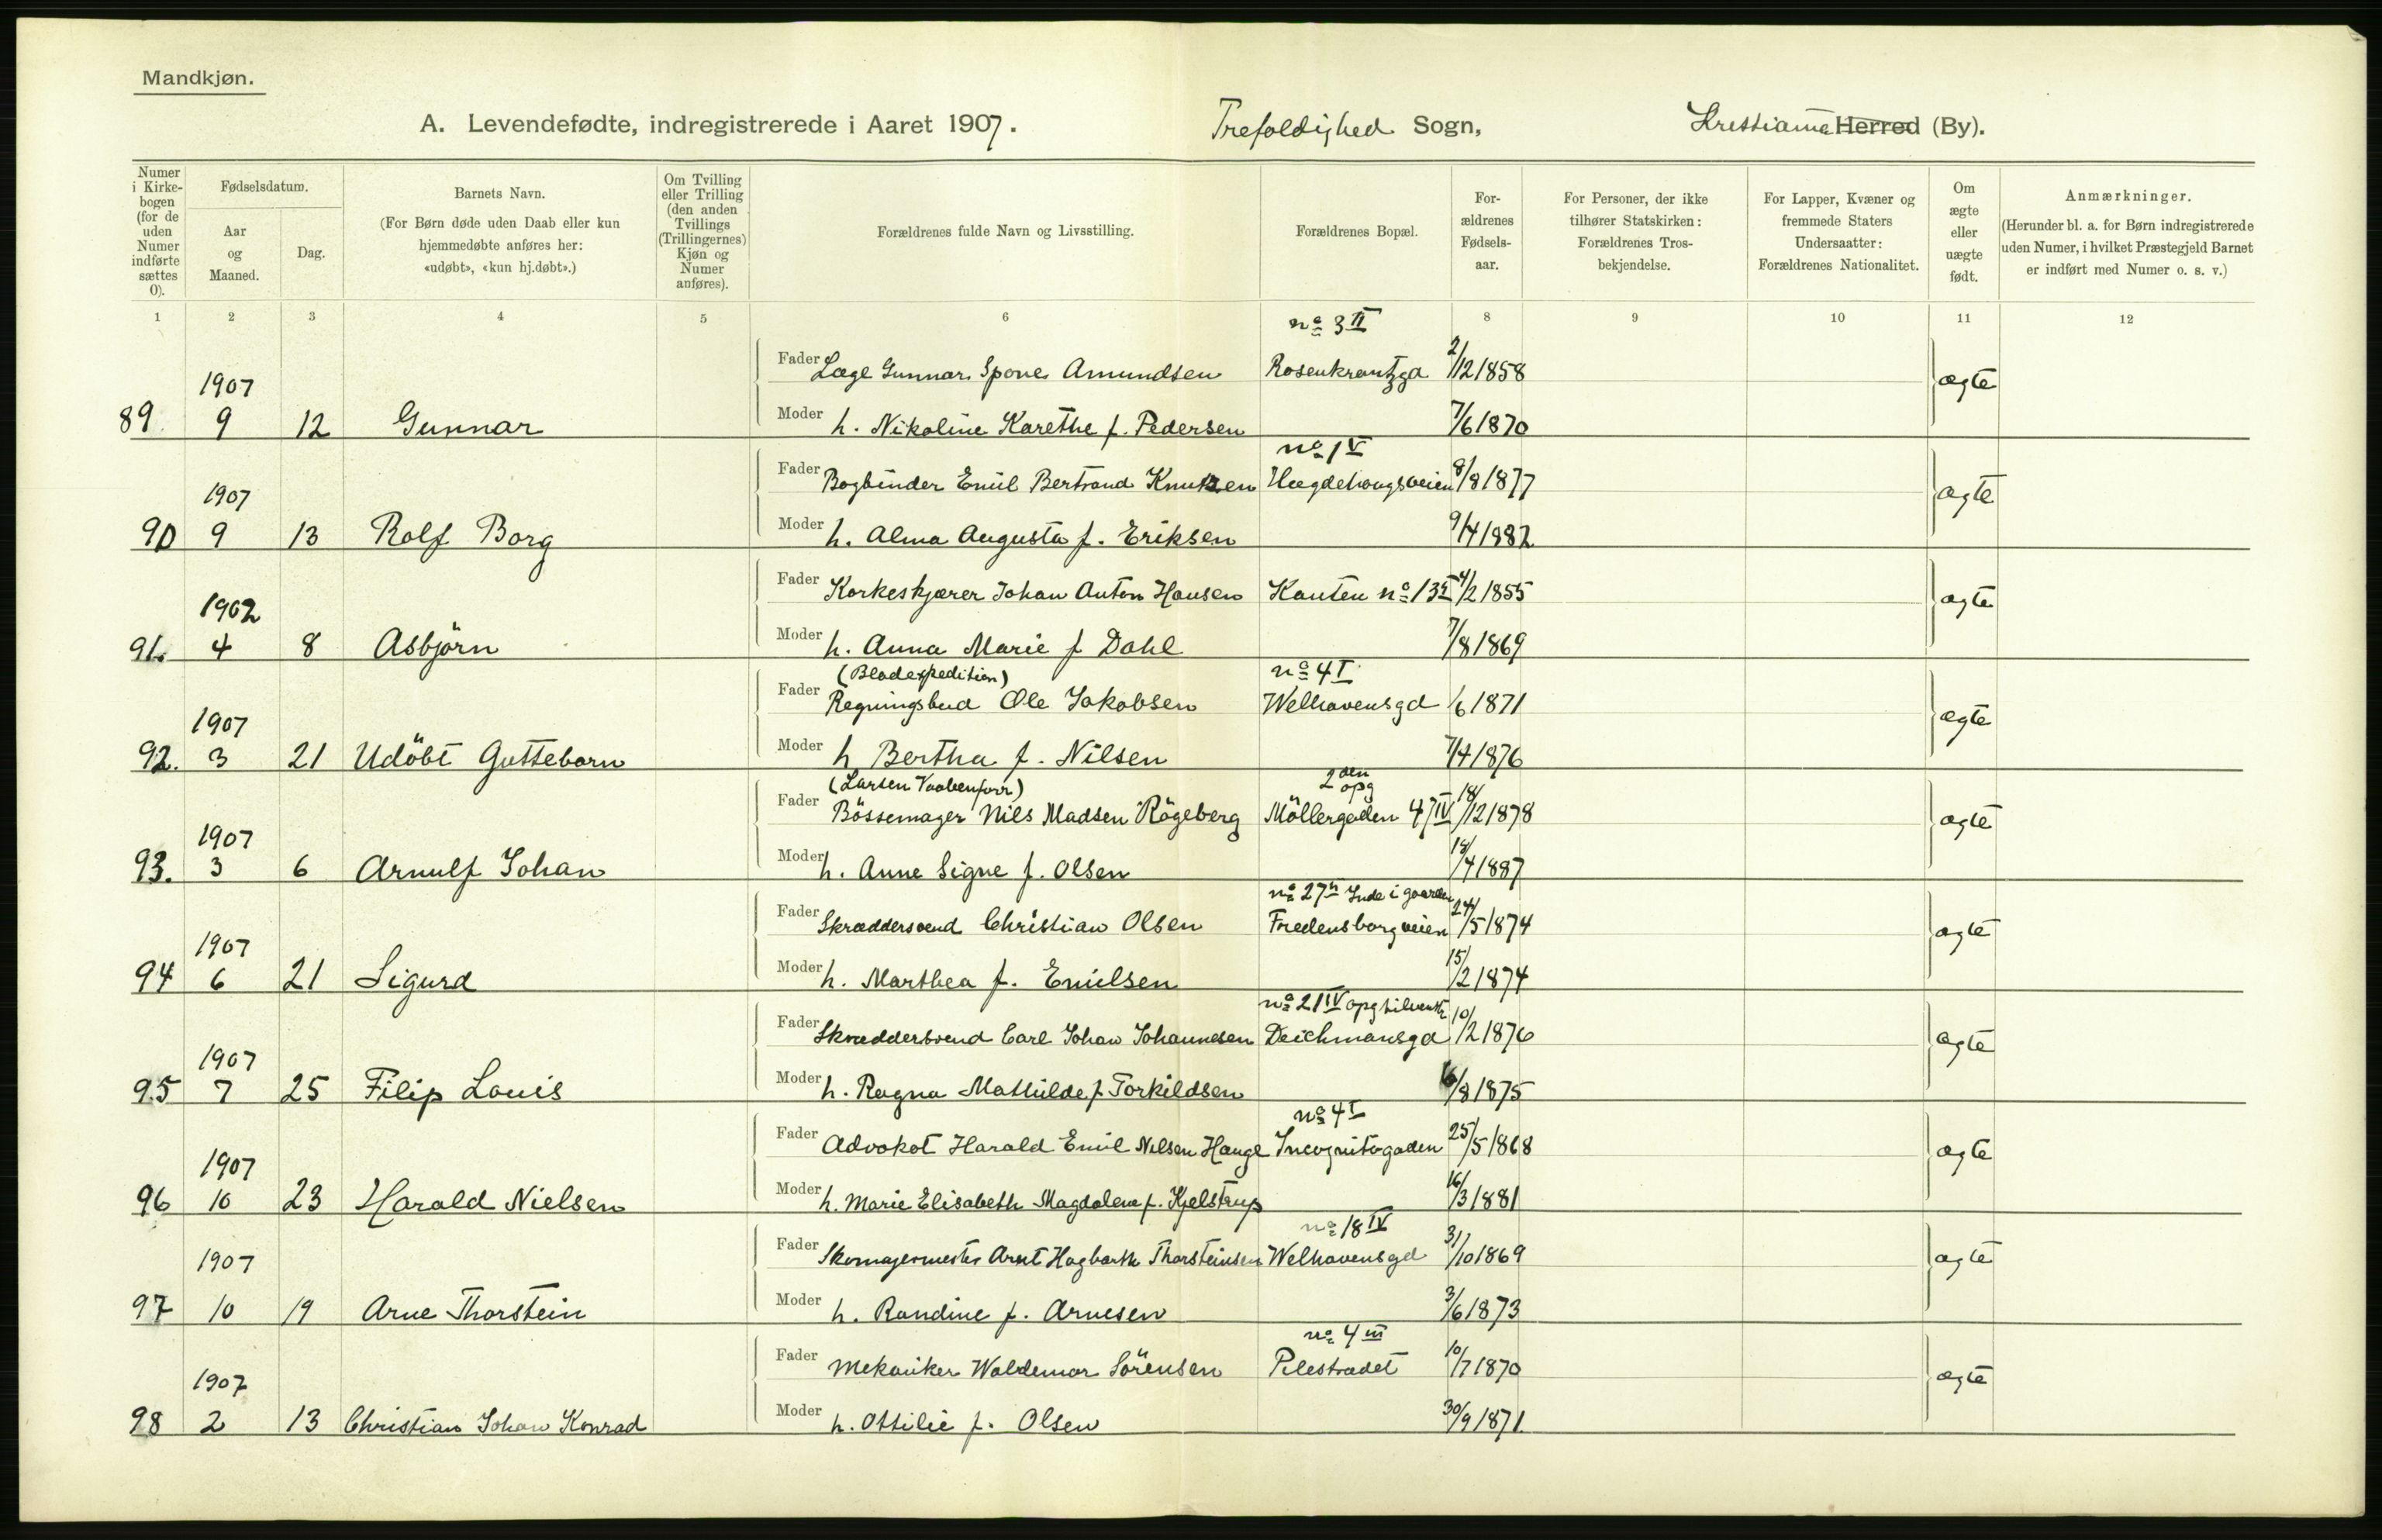 Mandkjøn.
A. Levendefødte, indregistrerede i Aaret 1907. Trefoldighed Sogn, Kristiania Herred (By).
Numer i Kirkebogen (for de uden Numer indførte sættes 0).
Fødselsdatum.
Aar og Maaned.
Dag.
Barnets Navn.
(For Børn døde uden Daab eller kun hjemmedøbte anføres her: «udøbt», «kun hj.døbt».)
Om Tvilling eller Trilling (den anden Tvillings (Trillingernes) Kjøn og Numer anføres).
Forældrenes fulde Navn og Livsstilling.
Forældrenes Bopæl.
Forældrenes Fødselsaar.
For Personer, der ikke tilhører Statskirken: Forældrenes Trosbekjendelse.
For Lapper, Kvæner og fremmede Staters Undersaatter: Forældrenes Nationalitet.
Om ægte eller uægte født.
Anmærkninger.
(Herunder bl. a. for Børn indregistrerede uden Numer, i hvilket Præstegjeld Barnet er indført med Numer o. s. v.)
1 2 3 4 5 6 8 9 10 11 12
no 3 II
Fader Læge Gunnar Spone Amundsen Rosenkrantzgd 2/12 1858
1907 ægte
89. 9 12 Gunnar Moder h. Nikoline Karethe f. Pedersen 7/6 1870
no 1 V
Fader Bogbinder Emil Bertrand Knutzen Hægdehaugsveien 8/8 1877
1907 ægte
90 9 13 Rolf Borg Moder h. Alma Augusta f. Eriksen 9/4 1882
Fader Korkeskjærer Johan Anton Hansen Kanten no 13 4/2 1855
1902 ægte
91. 4 8 Asbjörn Moder h. Anna Marie f Dahl 7/8 1869
(Bladexpedition) no 4 I
Fader Regningsbud Ole Jakobsen Welhavensgd 1/6 1871
1907 ægte
92. 3 21 Udöbt Guttebarn Moder h Bertha f. Nilsen 7/4 1876
(Larsen Vaabenforr) 2den opg
Fader Bössemager Nils Madsen Rögeberg Möllergaden 47 IV 18/12 1878
1907 ægte
93. 3 6 Arnulf Johan Moder h. Anne Signe f. Olsen 18/4 1887
no 27 II Inde i gaarden
Fader Skræddersvend Christian Olsen Fredensborgveien 24/5 1874
1907 ægte
94 6 21 Sigurd Moder h. Marthea f. Emilsen 15/2 1874
no 21 IV opg
Fader Skræddersvend Carl Johan Johannesen Deichmansgd 10/2 1876
1907 ægte
95 7 25 Filip Louis Moder h. Ragna Mathilde f Torkildsen 6/8 1875
no 4 I
Fader Advokat Harald Emil Nilsen Hauge Incognitogaden 25/5 1868
1907 ægte
96 10 23 Harald Nielsen Moder h. Marie Elisabeth Magdalena f. Kjelstrup 16/3 1881
no 18 IV
Fader Skomagermester Arnt Hagbarth Thorsteinsen Welhavensgd 31/10 1869
1907 ægte
97 10 19 Arne Thorstein Moder h. Randine f. Arnesen 3/6 1873
no 4 III
Fader Mekaniker Waldemar Sörensen Pilestrædet 10/7 1870
1907 ægte
98 2 13 Christian Johan Konrad Moder h. Ottilie f. Olsen 30/9 1871